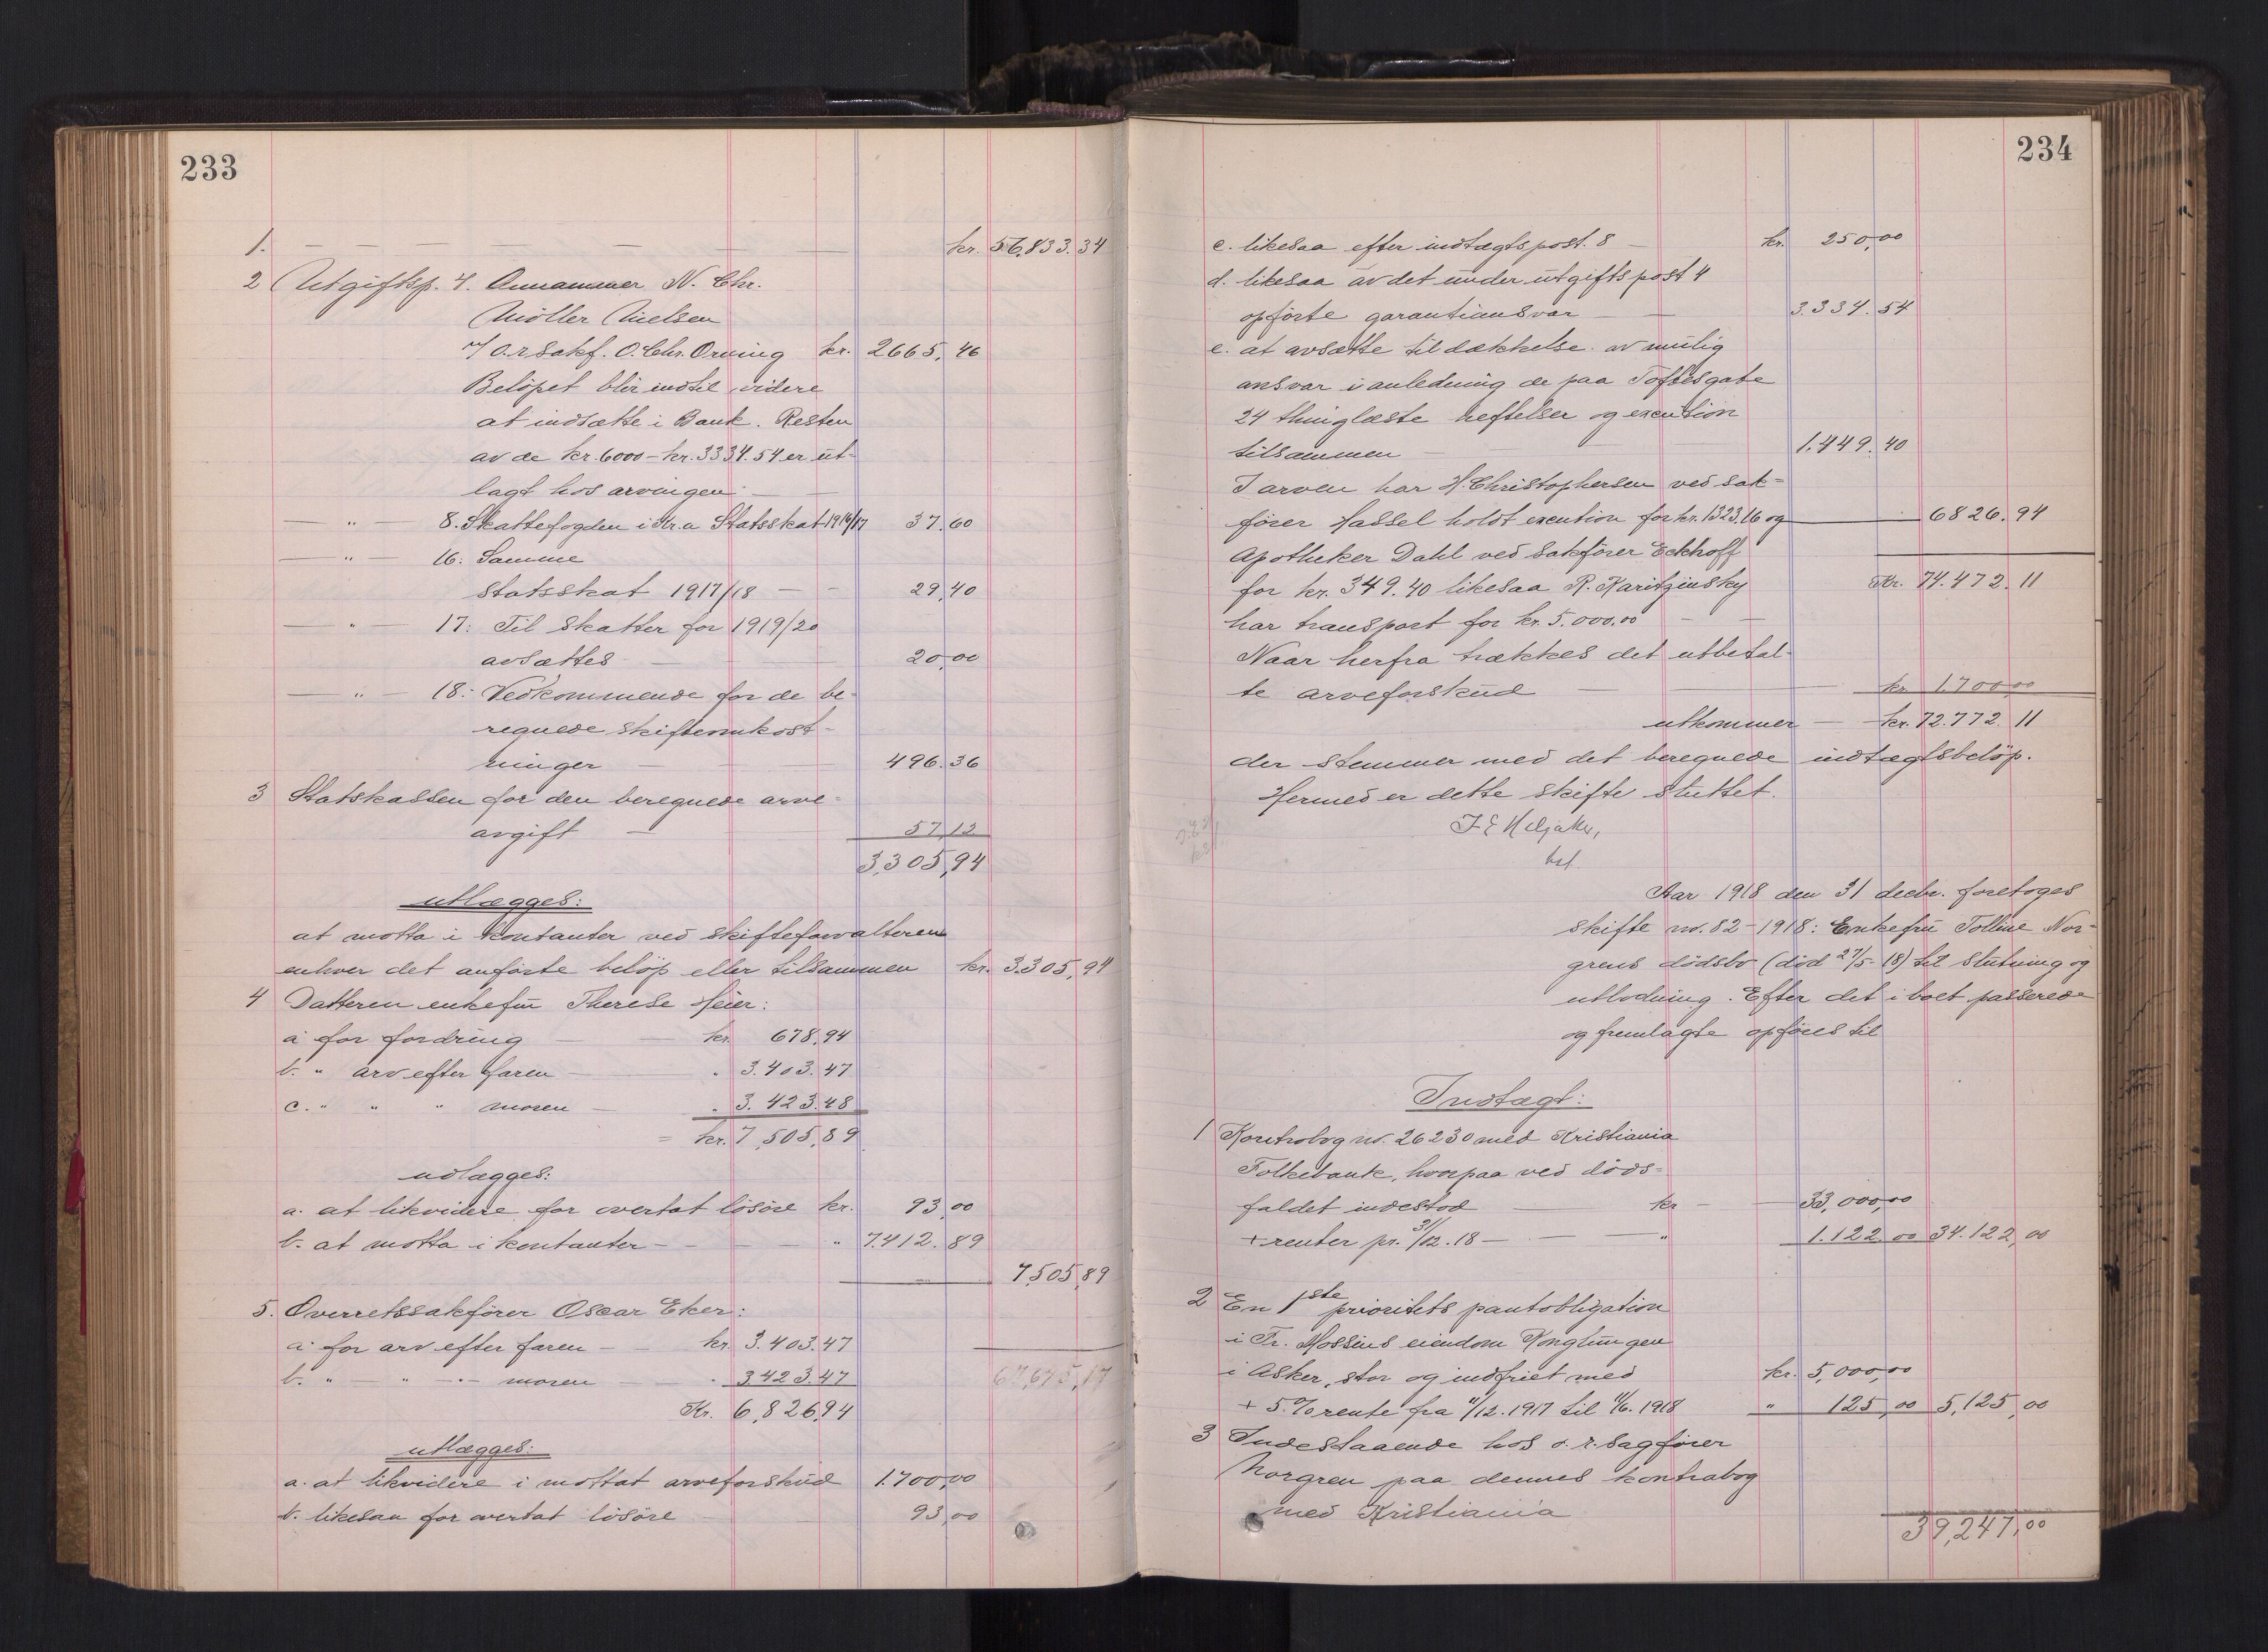 233
1. — — — — — — — kr. 56,833.34
2 Utgiftsp. 4. Annammer N. Chr.
Möller Nielsen
v/ o.r.sakf. O. Chr. Orning kr. 2665,46
Belöpet blir indtil videre
at indsætte i Bank. Resten
av de kr. 6000 – kr. 3334.54 er ut-
lagt hos arvingen — —
— " — 8. Skattefogden i Kr.a Statsskat 1916/17 37.60
— " — 16: Samme
Statsskat 1917/18 — - 29,40
— " — 17: Til skatter for 1919/20
avsættes — 20,00
— " — 18: Vedkommende for de be-
regnede skifteomkost-
ninger — 496.36
3 Statskassen for den beregnede arve-
avgift — 57,12
3,305,94
utlægges:
at motta i kontanter ved skifteforvalteren
enhver det anförte belöp eller tilsammen kr. 3.305,94
4 Datteren enkefru Therese Heier:
a for fordring — — kr. 678,94
b. " arv efter faren — " 3.403.47
c. " " " moren — " 3.423.48
= kr. 7,505,89
udlægges:
a. at likvidere for overtat lösöre kr. 93,00
b. at motta i kontanter — — — " 7.412.89
7,505,89
5. Overretssakförer Oscar Eker:
a. for arv efter faren — kr. 3.403.47
b. " — " — " moren — " 3.423.47
67,675,17
Kr. 6,826,94
utlægges:
a. at likvidere i mottat arveforskud 1.700,00
b. likesaa for overtat lösöre 93,00
234
c. likesaa efter indtægtspost. 8 — kr. 250,00
d. likesaa av det under utgiftspost 4
opförte garantiansvar — — 3.334.54
e. at avsætte til dækkelse av mulig
ansvar i anledning de paa Toftesgate
24 thinglæste heftelser og execution
tilsammen — 1.449.40
I arven har H. Christophersen ved sak-
förer Hassel holdt execution for kr. 1323.16 og — 6826.94
Apotheker Dahl ved sakförer Eckhoff
for kr. 349.40 likesaa R. Karitzinsky Kr. 74.472.11
har transport for kr. 5.000.00 — —
Naar herfra trækkes det utbetal-
te arveforskud — — kr. 1.700,00
utkommer — kr. 72.772.11
der stemmer med det beregnede indtægtsbelöp.
Hermed er dette skifte sluttet.
bst.
Aar 1918 den 31 decbr. foretoges
skifte no. 82 – 1918: Enkefru Tolline Nor-
grens dödsbo (död 27/5-18) til slutning og
utlodning. Efter det i boet passerede
og fremlagte opföres til
Indtægt:
1 Kontrabog no. 26230 med Kristiania
Folkebank, hvorpaa ved döds-
faldet indestod — kr — 33,000,00
+ renter pr. 31/12.18 — — — " 1.122.00 34.122,00
2 En 1ste prioritets pantobligation
i Fr. Mossins eiendom Konglungen
i Asker, stor og indfriet med kr. 5,000,00
+ 5.% rente fra 11/12.1917 til 11/6.1918 " 125,00 5,125,00
3 Indestaaende hos o.r.sagförer
Norgren paa dennes kontrabog
med Kristiania
39,247,00